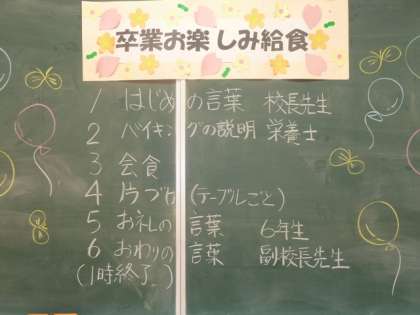 卒業お楽しみ給食
1 はじめの言葉 校長先生
2 バイキングの説明 栄養士
3 会食
4 片づけ(テーブルごと)
5 お礼の言葉 6年生
6 おわりの言葉 副校長先生
(1時終了)